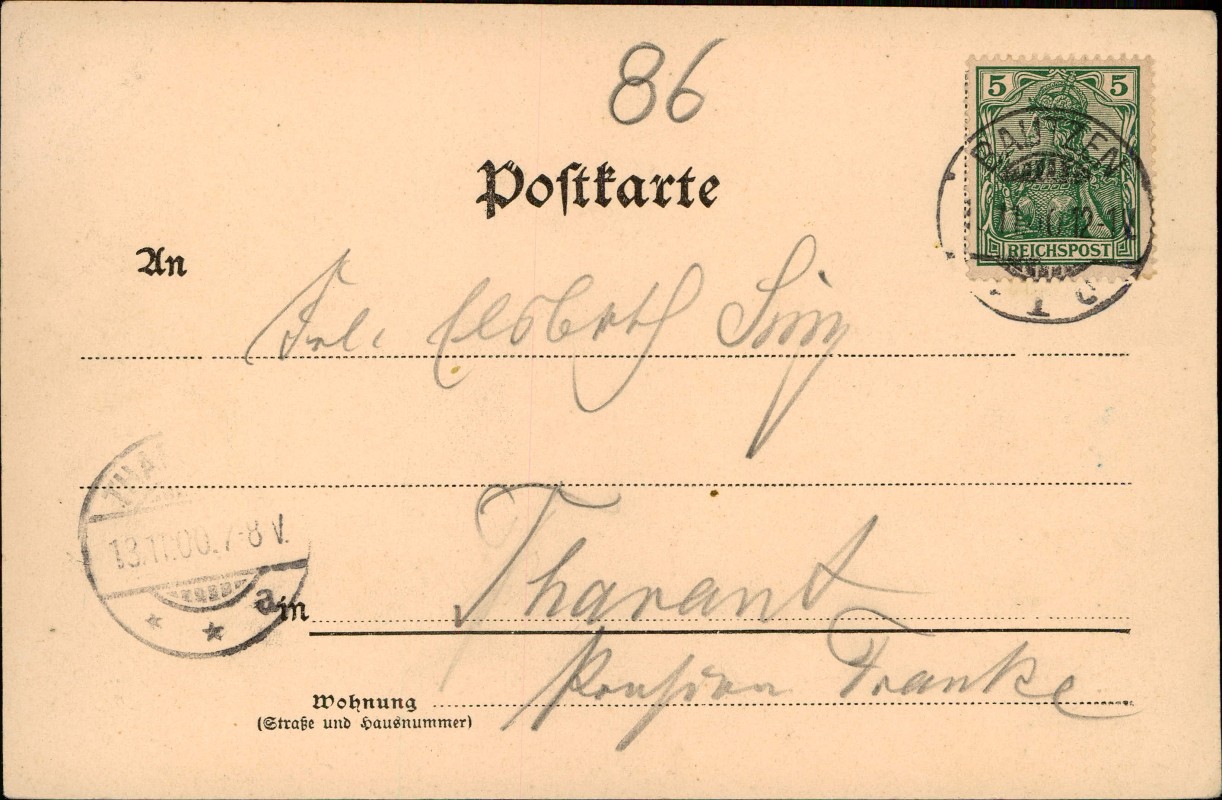 86
5 5
BAUTZEN
REICHSPOST
Postkarte
An
Frl. Elsbeth
THA
13.11.00.7-8 V.
a
in Tharant
Pension Franke
Wohnung
(Straße und Hausnummer)